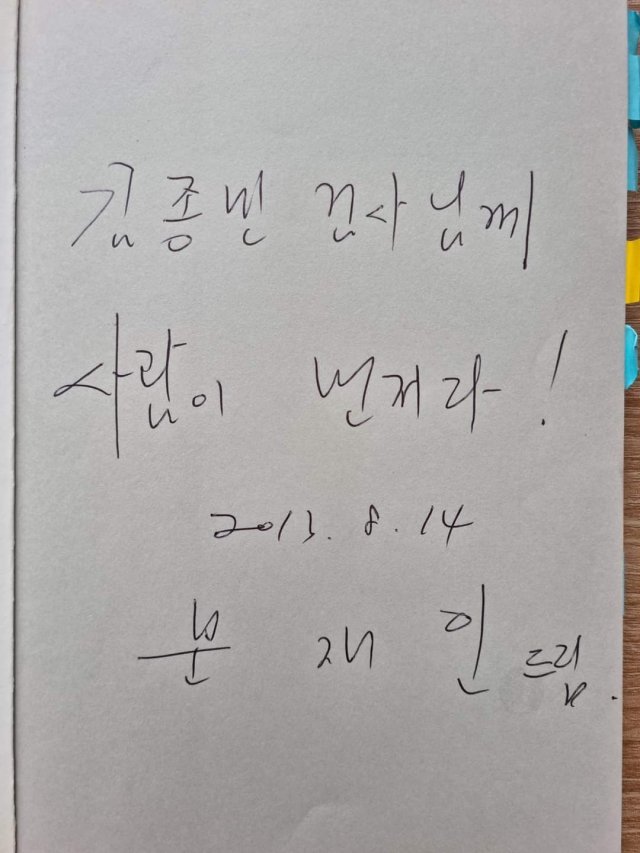 김종민 검사님께
사람이 먼저다!
2013. 8. 14
문재인 드림.